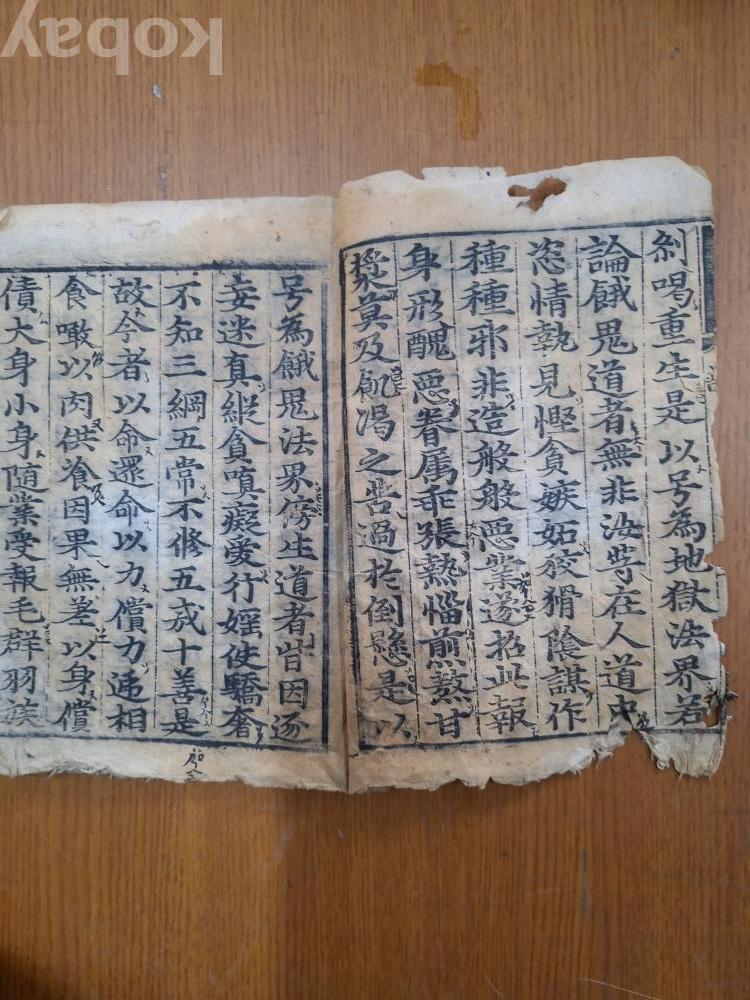 Kobay
刹喝重生是以号為地獄法界若
論餓鬼道者無非汝等在人道中
恣情執見慳貪嫉妬狡猾陰謀作
種種邪非造般般悪業遂招此報
身形醜悪眷属乖張熱惱煎熬甘
漿莫及飢渴之苦過於倒懸是以
号為餓鬼法界傍生道者皆因逐
妄迷真縱貪嗔癡愛行婬使驕奢
不知三綱五常不修五戒十善是
故今者以命還命以力償力遞相
食噉以肉供飡因果無差以身償
債大身小身隨業受報毛群羽族